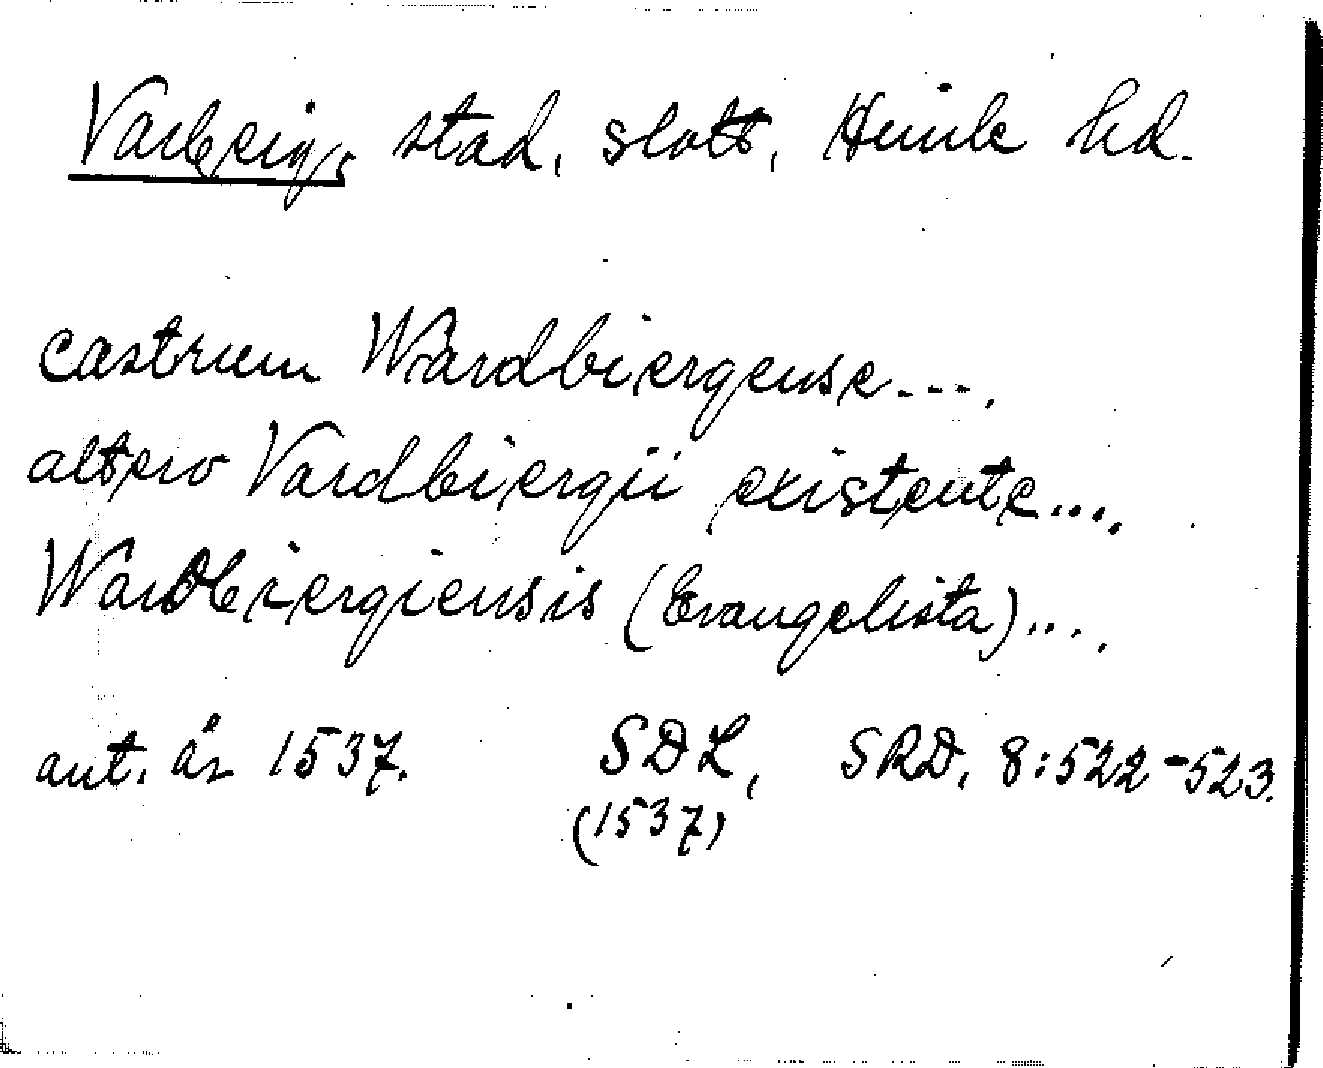 Varberg, stad, slott, Himle hd.
castrum Wardbiergense....
altero Vardbiergii existente....
Wardbiergiensis (Evangelista)....
ant. år 1537. SDL, SRD, 8:522-523.
(1537)